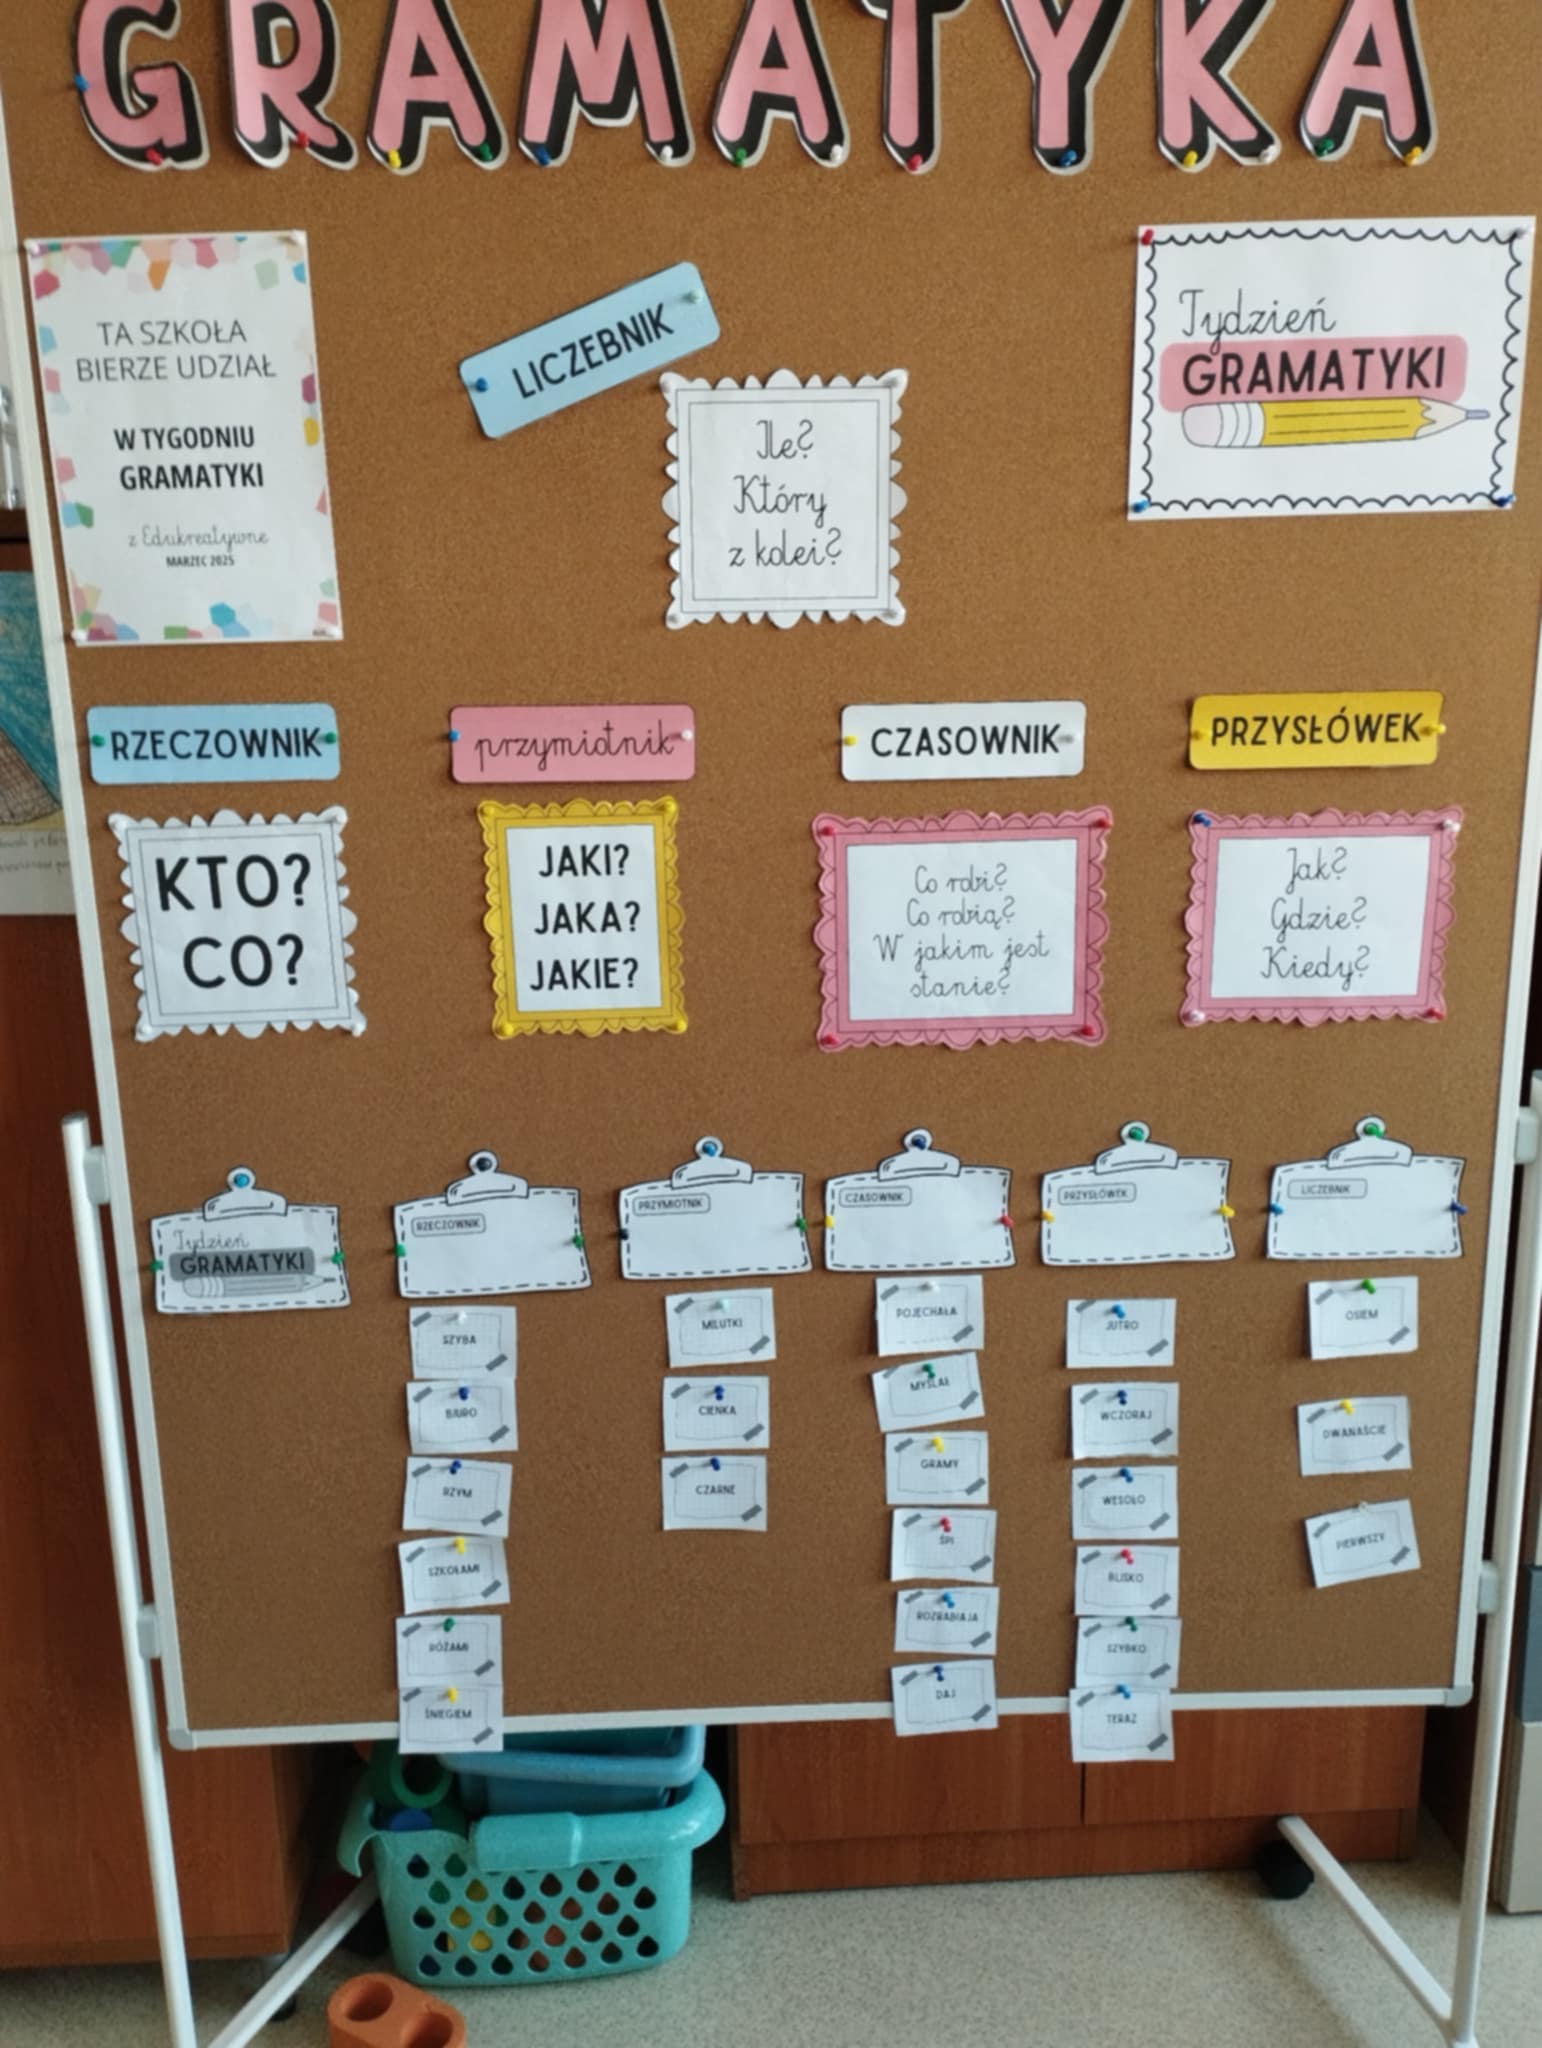 GRAMATYKA
TA SZKOŁA
BIERZE UDZIAŁ
W TYGODNIU
GRAMATYKI
z Edukreatywne
MARZEC 2025
LICZEBNIK
Ile?
Który
z kolei?
Tydzień
GRAMATYKI
RZECZOWNIK
KTO?
CO?
przymiotnik
JAKI?
JAKA?
JAKIE?
CZASOWNIK
Co robi?
Co robią?
W jakim jest
stanie?
PRZYSŁÓWEK
Jak?
Gdzie?
Kiedy?
Tydzień
GRAMATYKI
RZECZOWNIK
SZYBA
BIURO
RZYM
SZKOŁAMI
RÓŻAMI
ŚNIEGIEM
PRZYMIOTNIK
MILUTKI
CIENKA
CZARNE
CZASOWNIK
POJECHAŁA
MYŚLAŁ
GRAMY
ŚPI
ROZRABIAJĄ
DAJ
PRZYSŁÓWEK
JUTRO
WCZORAJ
WESOŁO
BLISKO
SZYBKO
TERAZ
LICZEBNIK
OSIEM
DWANAŚCIE
PIERWSZY